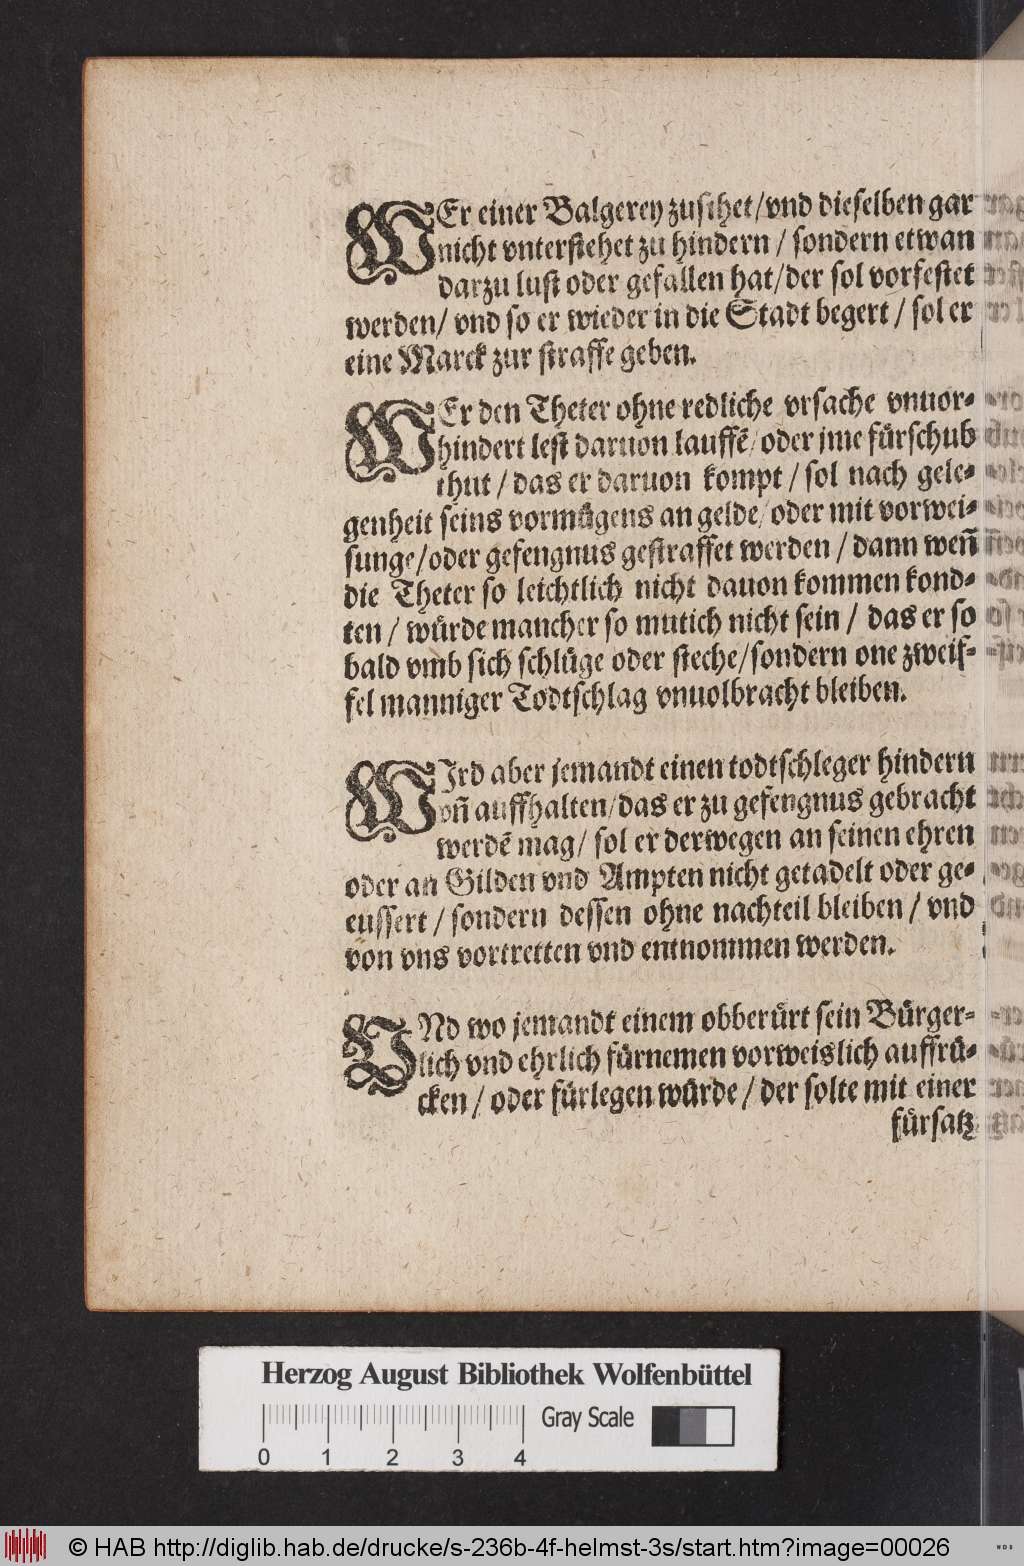 WEr einer Balgerey zusihet/vnd dieselben gar
nicht vnterstehet zu hindern / sondern etwan
darzu lust oder gefallen hat/der sol vorfestet
werden/ vnd so er wieder in die Stadt begert / sol er
eine Marck zur straffe geben.
WEr den Theter ohne redliche vrsache vnuor-
hindert lest daruon lauffẽ/oder jme fürschub
thut / das er daruon kompt / sol nach gele-
genheit seins vormügens an gelde/oder mit vorwei-
sunge/oder gefengnus gestraffet werden / dann weñ
die Theter so leichtlich nicht dauon kommen kond-
ten / würde mancher so mutich nicht sein / das er so
bald vmb sich schlüge oder steche/sondern one zweif-
fel manniger Todtschlag vnuolbracht bleiben.
WIrd aber jemandt einen todtschleger hindern
vñ auffhalten/das er zu gefengnus gebracht
werdẽ mag/ sol er derwegen an seinen ehren
oder an Gilden vnd Ampten nicht getadelt oder ge-
eussert / sondern dessen ohne nachteil bleiben / vnd
von vns vortretten vnd entnommen werden.
VNd wo jemandt einem obberürt sein Bürger-
lich vnd ehrlich fürnemen vorweislich auffrü-
cken / oder fürlegen würde / der solte mit einer
fürsatz
Herzog August Bibliothek Wolfenbüttel
Gray Scale
0 1 2 3 4
© HAB http://diglib.hab.de/drucke/s-236b-4f-helmst-3s/start.htm?image=00026